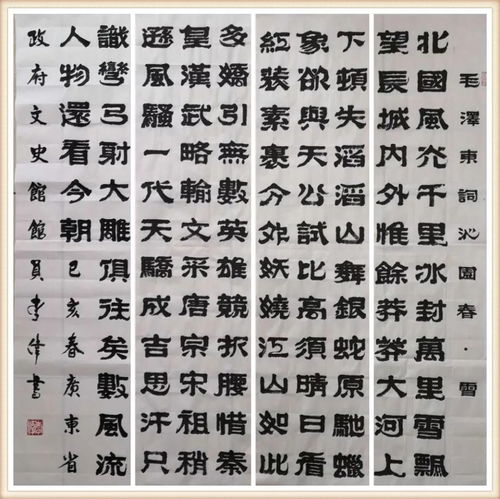 毛澤東詞沁園春·雪
北國風光千里冰封萬里雪飄
望長城內外惟餘莽莽大河上
下頓失滔滔山舞銀蛇原馳蠟
象欲與天公試比高須晴日看
紅裝素裹分外妖嬈江山如此
多嬌引無數英雄競折腰惜秦
皇漢武略輸文采唐宗宋祖稍
遜風騷一代天驕成吉思汗只
識彎弓射大雕俱往矣數風流
人物還看今朝己亥春廣東省
政府文史館館員李書